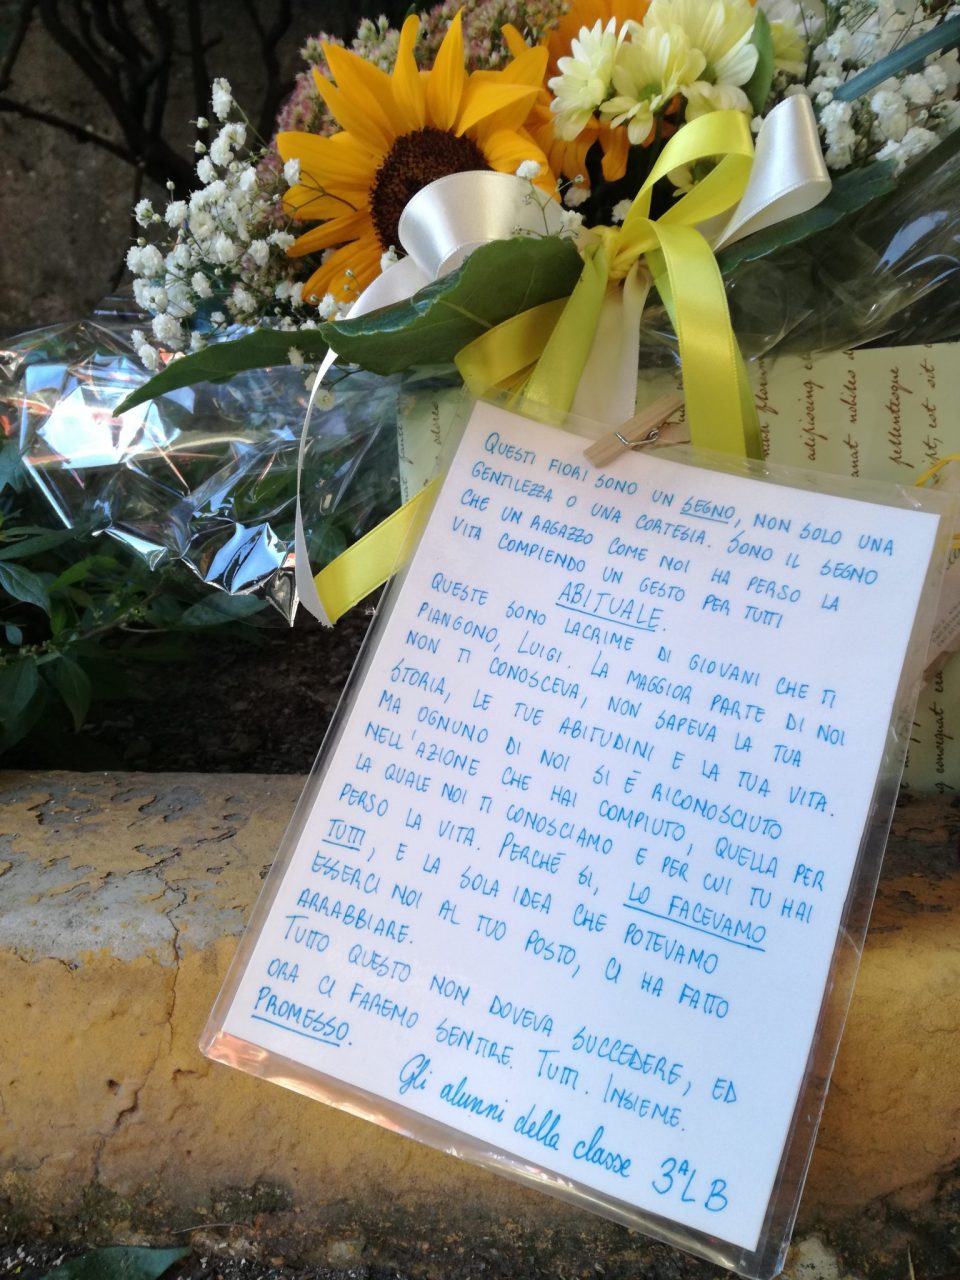 QUESTI FIORI SONO UN SEGNO, NON SOLO UNA
GENTILEZZA O UNA CORTESIA. SONO IL SEGNO
CHE UN RAGAZZO COME NOI HA PERSO LA
VITA COMPIENDO UN GESTO PER TUTTI
ABITUALE.
QUESTE SONO LACRIME DI GIOVANI CHE TI
PIANGONO, LUIGI. LA MAGGIOR PARTE DI NOI
NON TI CONOSCEVA, NON SAPEVA LA TUA
STORIA, LE TUE ABITUDINI E LA TUA VITA.
MA OGNUNO DI NOI SI È RICONOSCIUTO
NELL'AZIONE CHE HAI COMPIUTO, QUELLA PER
LA QUALE NOI TI CONOSCIAMO E PER CUI TU HAI
PERSO LA VITA. PERCHÉ SI, LO FACEVAMO
TUTTI, E LA SOLA IDEA CHE POTEVAMO
ESSERCI NOI AL TUO POSTO, CI HA FATTO
ARRABBIARE.
TUTTO QUESTO NON DOVEVA SUCCEDERE, ED
ORA CI FAREMO SENTIRE. TUTTI. INSIEME.
PROMESSO.
Gli alunni della classe 3ªL B
adipissing
anat nobiles
pellentesque
est sit
consequat